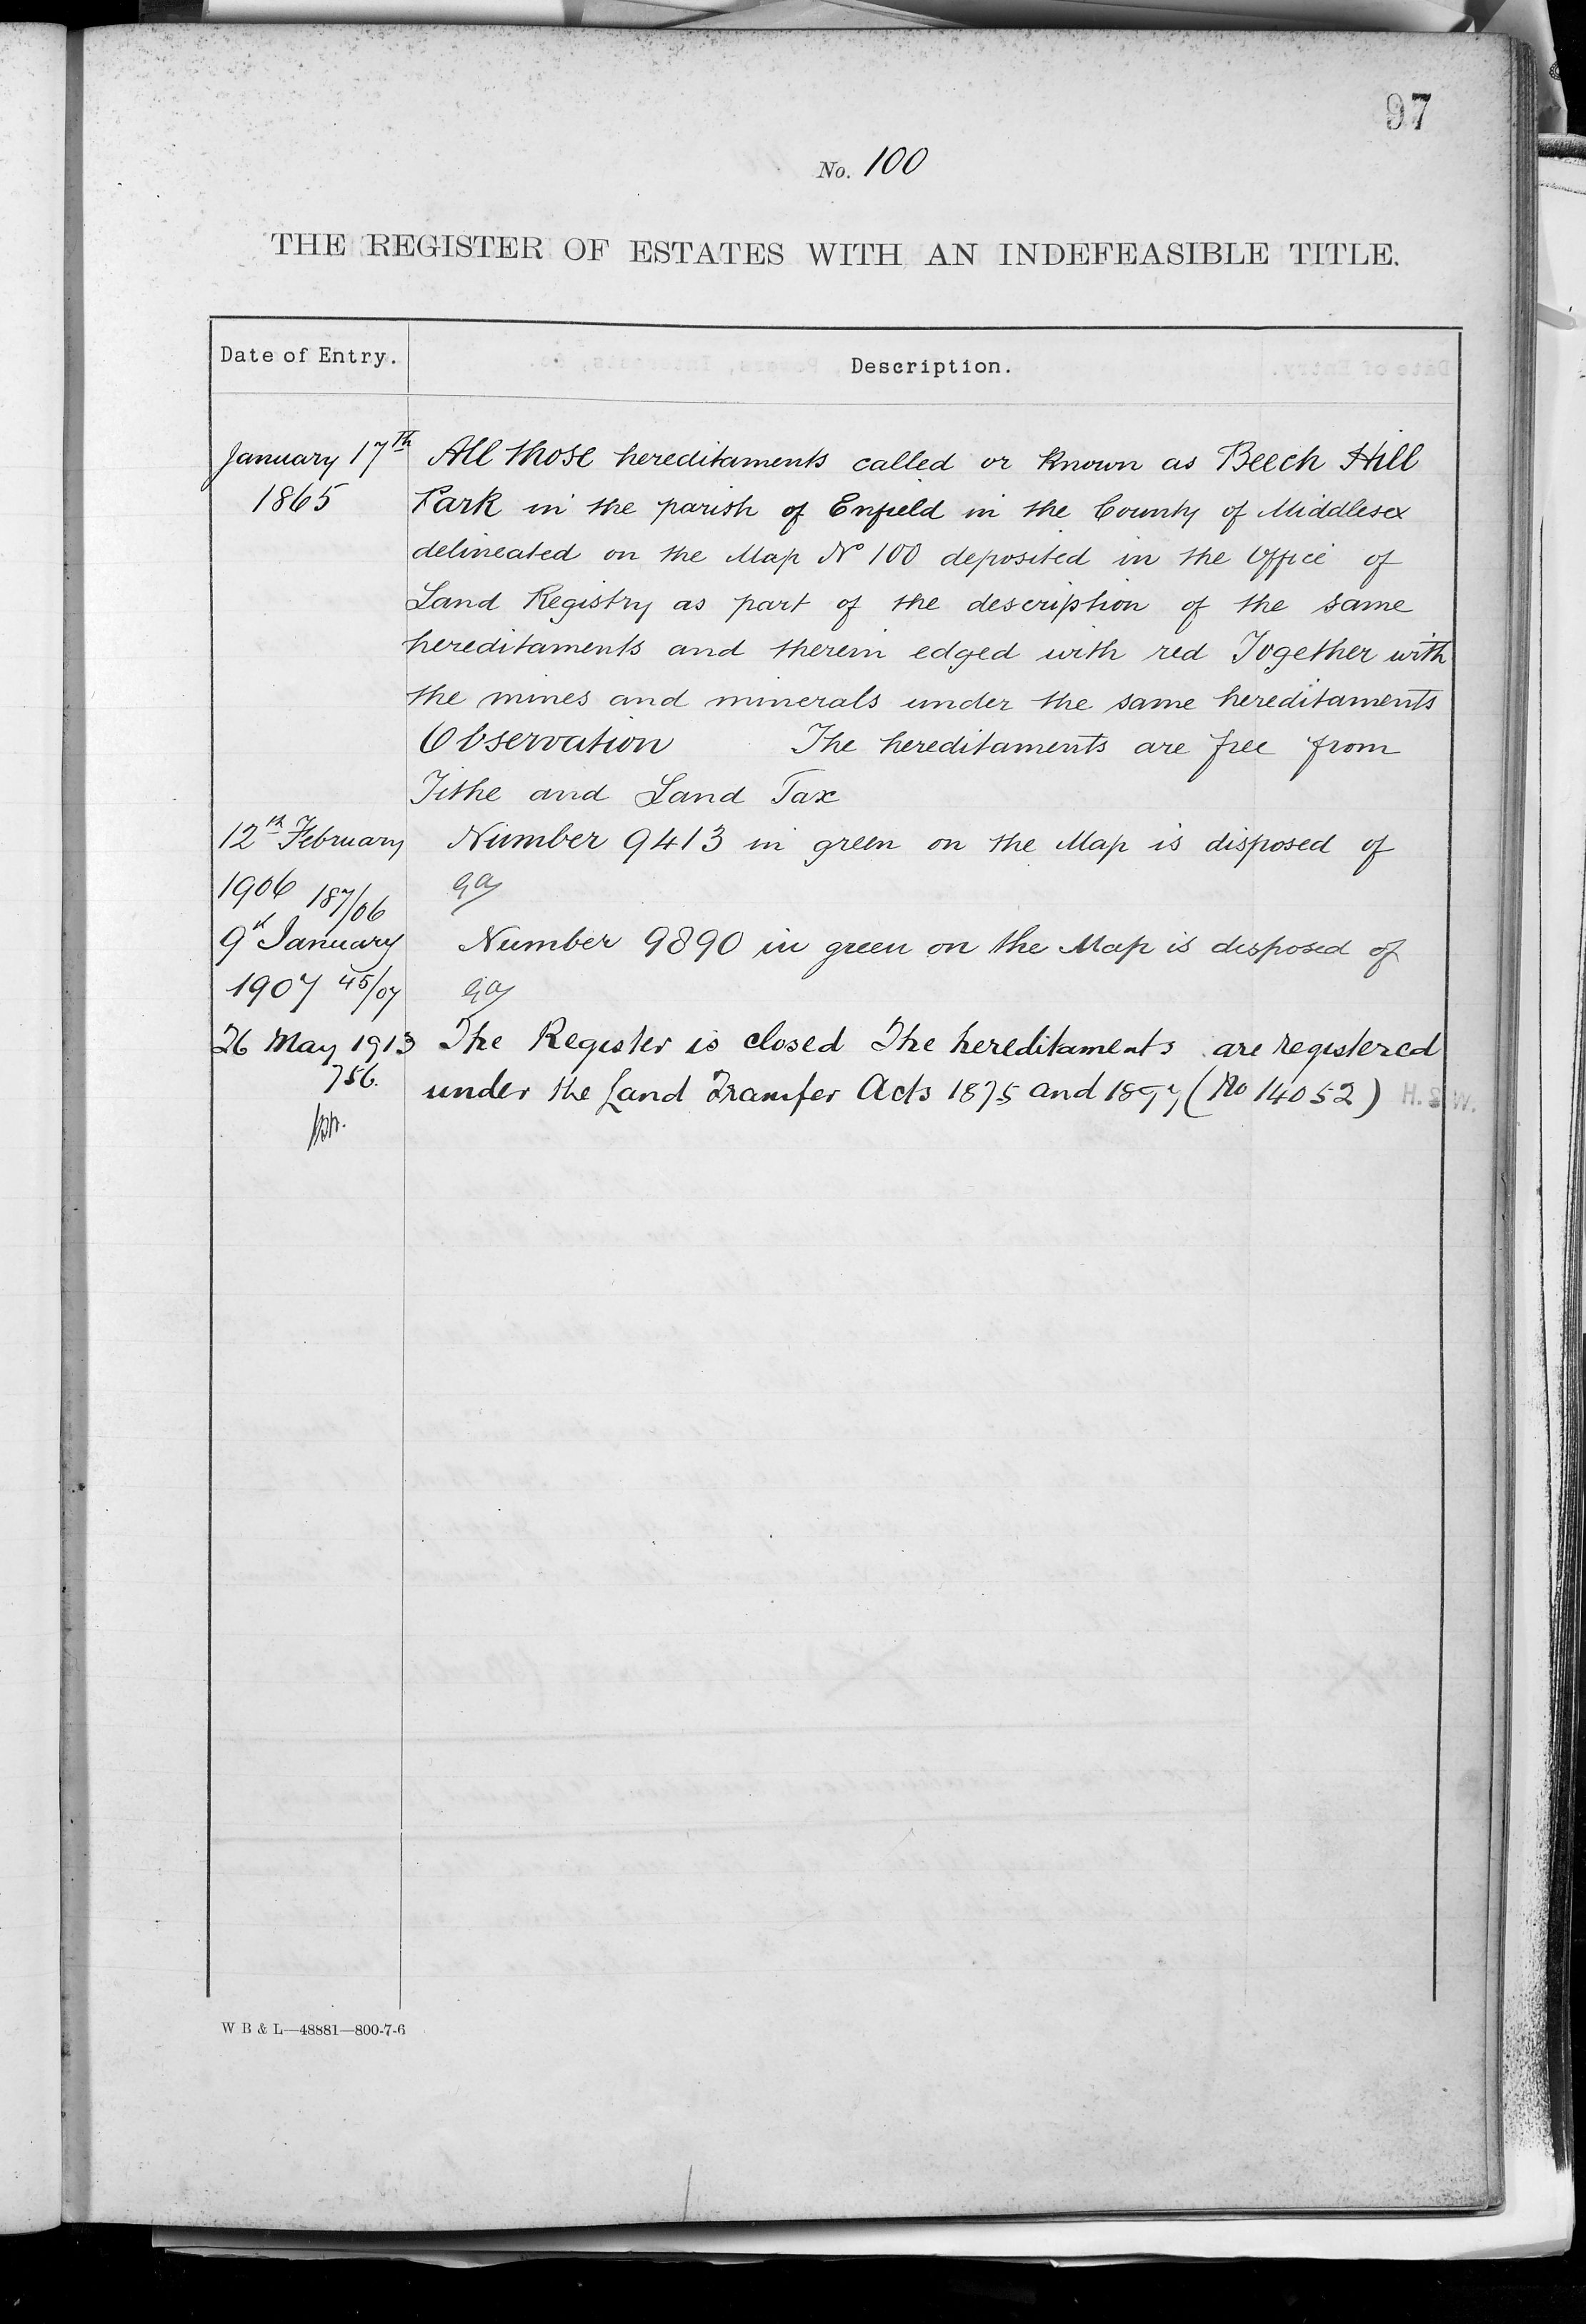 97
No. 100
THE REGISTER OF ESTATES WITH AN INDEFEASIBLE TITLE.
Date of Entry.
Description.
January 17th All those hereditaments called or known as Beech Hill
1865 Park in the parish of Enfield in the County of Middlesex
delineated on the Map No 100 deposited in the Office of
Land Registry as part of the description of the same
hereditaments and therein edged with red Together with
the mines and minerals under the same hereditaments
Observation The hereditaments are free from
Tithe and Land Tax
12th February Number 9413 in green on the Map is disposed of
1906 187/06
9th January Number 9890 in green on the Map is disposed of
1907 45/07
26 May 1913 The Register is closed The hereditaments are registered
756. under the Land Transfer Acts 1875 and 1897 (No 14052)
W B & L—48881—800-7-6